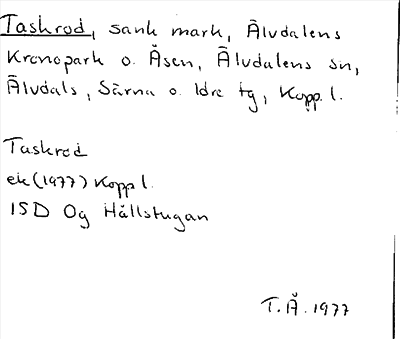 Taskrod, sank mark, Älvdalens
Kronopark o. Åsen, Älvdalens sn,
Älvdals, Särna o. Idre tg, Kopp. l.
Taskrod
ek (1977) Kopp l.
15D Og Hållstugan
T.Å. 1977